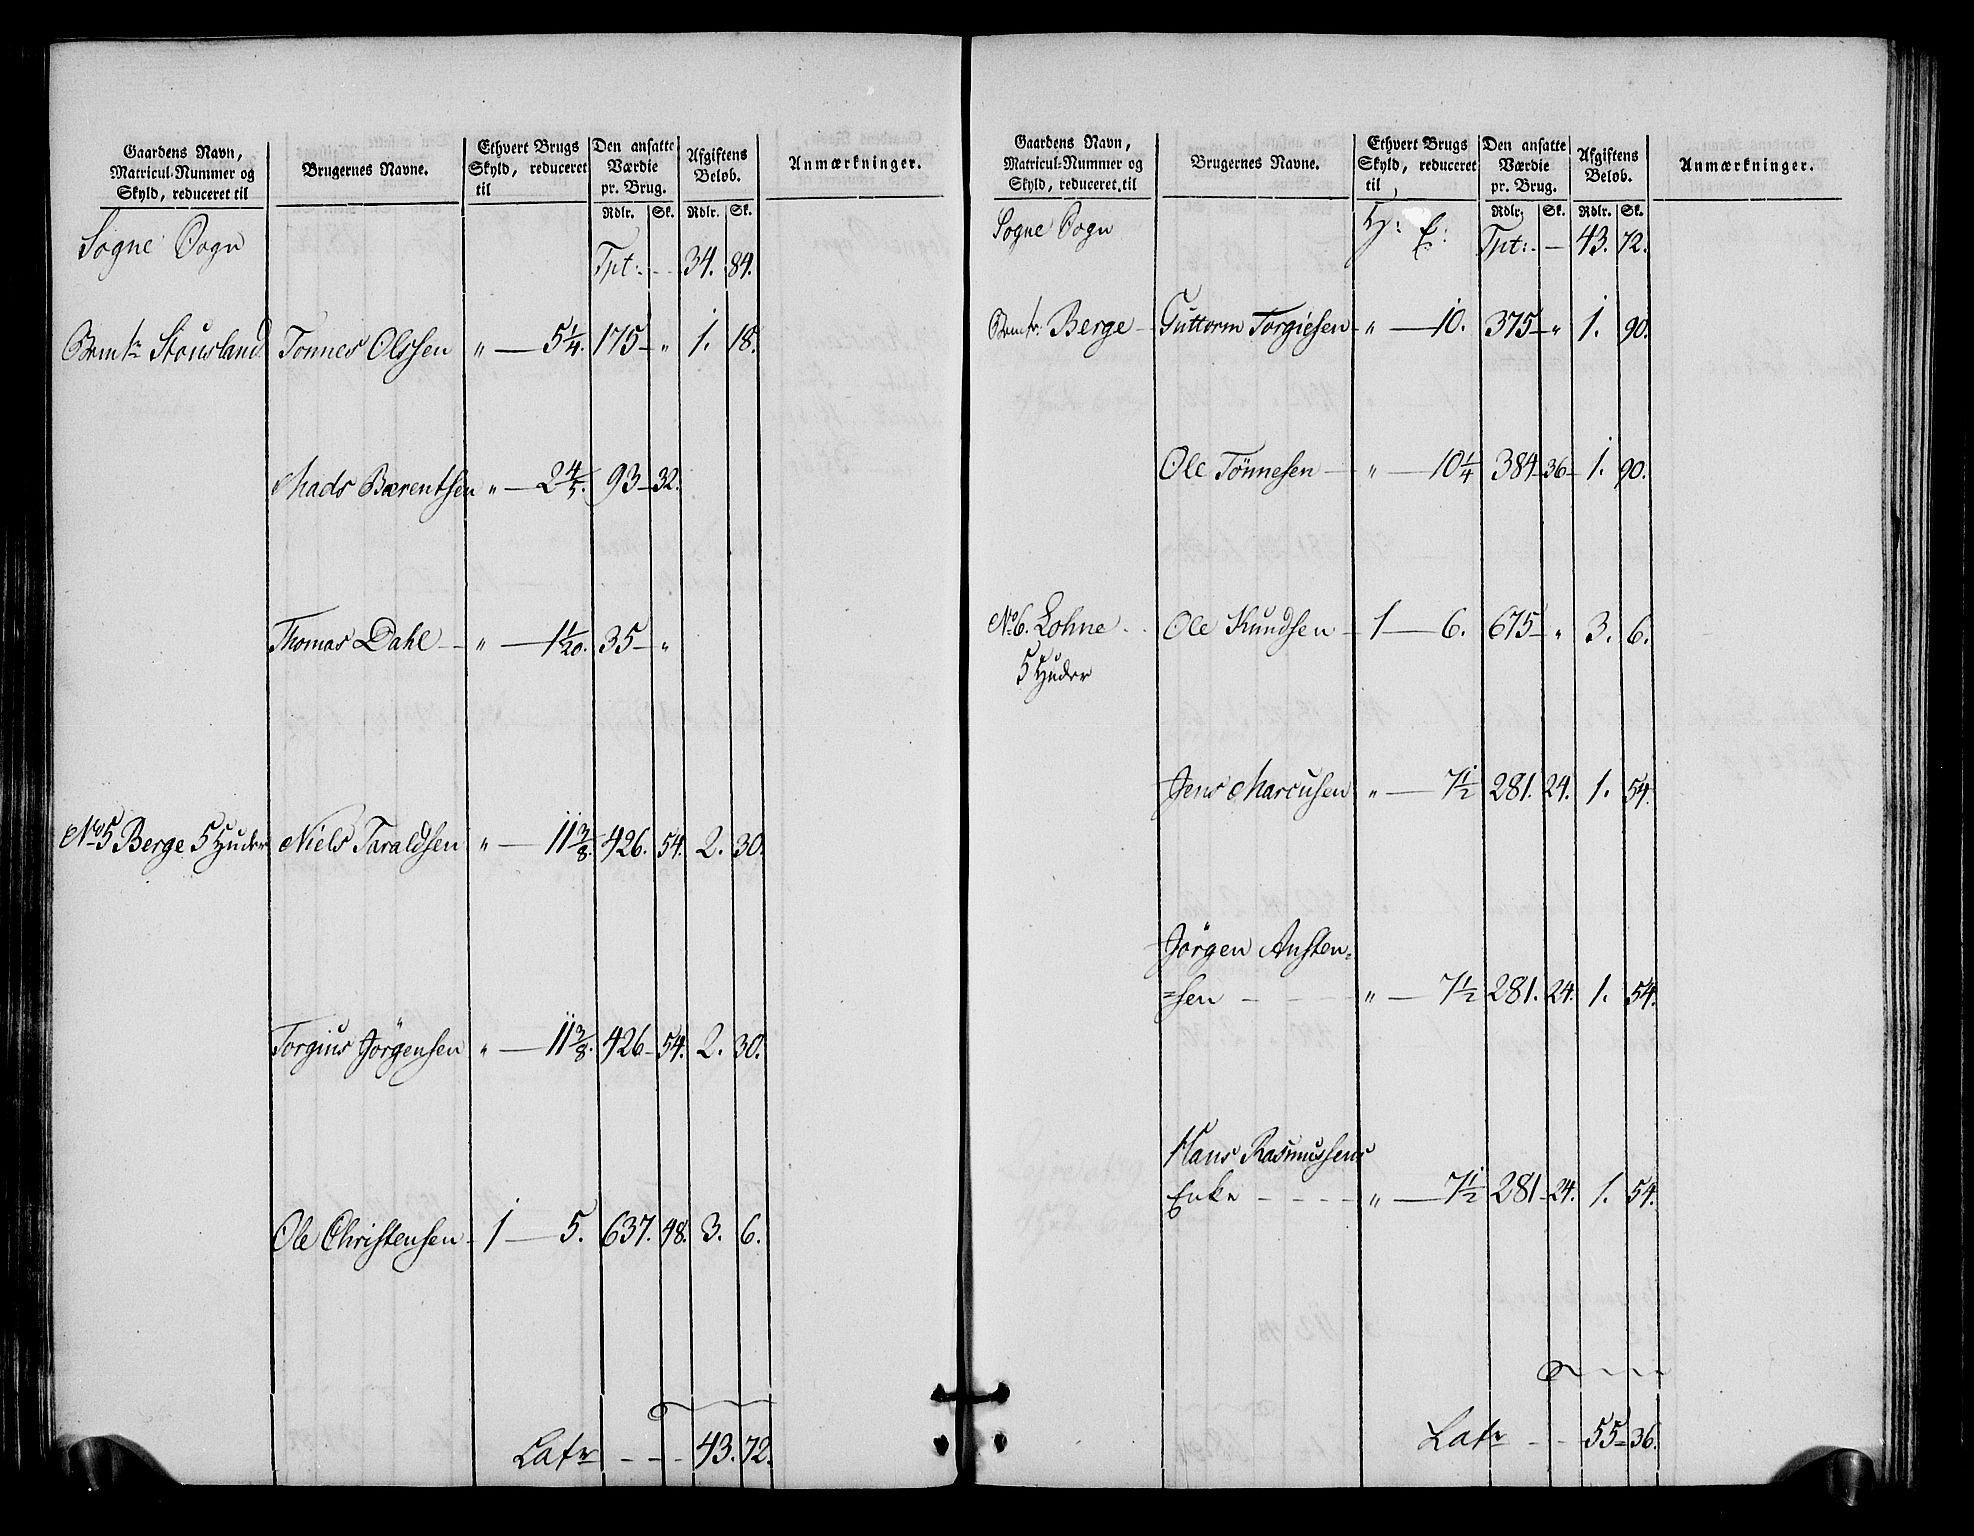 Gaardens Navn, Matricul-Nummer og Skyld, reduceret til | Brugernes Navne. | Ethvert Brugs Skyld, reduceret til | Den ansatte Værdie pr. Brug. | Afgiftens Beløb. | Anmærkninger.
Rdlr. | Sk. | Rdlr. | Sk.
Sogne Sogn
Tpt: - - 34. 84.
Stousland Tonnes Olssen " — 5 1/4. 175 — " 1. 18.
Mads Bærentsen " — 2 4/5. 93 — 32.
Thomas Dahl — " — 1 1/20. 35 — "
No 5 Berge 5 Huder Niels Taraldsen " — 11 3/8. 426. 54. 2. 30.
Torgius Jörgensen " — 11 3/8. 426 — 54. 2. 30.
Ole Christensen — 1 — 5. 637. 48. 3. 6.
Latr - - - 43. 72.
Gaardens Navn, Matricul-Nummer og Skyld, reduceret til | Brugernes Navne. | Ethvert Brugs Skyld, reduceret til | Den ansatte Værdie pr. Brug. | Afgiftens Beløb. | Anmærkninger.
Rdlr. | Sk. | Rdlr. | Sk.
Sogne Sogn H: E: Tpt: — 43. 72.
Berge — Guttorm Torgiesen — " — 10. 375 — " 1. 90.
Ole Tönnesen — " — 10 1/4 384 — 36 — 1. 90.
No 6. Lohne - - Ole Knudsen — 1 — 6. 675 — " 3. 6.
5 Huder
Jens Marcusen " — 7 1/2 281. 24. 1. 54.
Jörgen Ansten=
=sen - - - " — 7 1/2 281. 24. 1. 54.
Hans Rasmussens
Enke - - - - " — 7 1/2 281 — 24. 1. 54.
Latr - - 55 — 36.